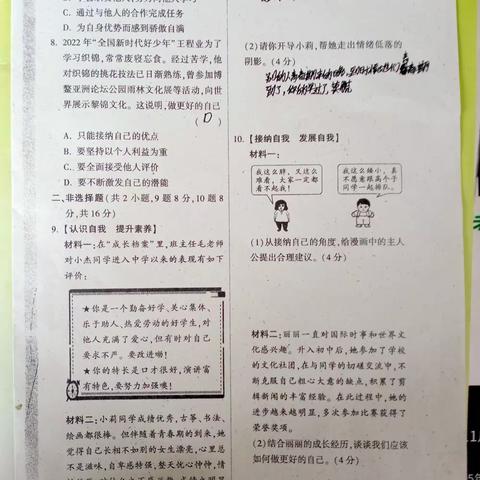 C. 通过与他人的合作完成任务
D. 为自身优势而感到骄傲自满
8. 2022年“全国新时代好少年”王程业为了
学习织锦,常常废寝忘食。经过苦学,他
对织锦的挑花技法已日渐熟练,曾参加博
鳌亚洲论坛公园雨林文化展等活动,向世
界展示黎锦文化。这说明,做更好的自己
(D)
A. 只能接纳自己的优点
B. 要坚持以个人利益为重
C. 要全面接受他人评价
D. 要不断激发自己的潜能
二、非选择题(共2小题,9题8分,10题8
分,共16分)
9. 【认识自我 提升素养】
材料一:在“成长档案”里,班主任毛老师
对小杰同学进入中学以来的表现有如下
评价:
★你是一个勤奋好学、关心集体、
乐于助人、热爱劳动的好学生,对
他人充满了爱心,但有时对自己
要求不严。要改进哟!
★你的特长是口才很好,演讲富
有特色,要努力加强噢!
材料二:小莉同学成绩优秀,古筝、书法、
绘画都很棒。但伴随着青春期的到来,她
觉得自己长相不如别的女生漂亮,心里总
不是滋味,自卑感特强,整天忧心忡忡,情
(2)请你开导小莉,帮她走出情绪低落的
阴影。(4分)
10. 【接纳自我 发展自我】
材料一:
我这么胖,又这么
难看,大家一定都
看不起我!
我这么矮小,真
不愿意跟高个子
同学一起排队。
(1)从接纳自己的角度,给漫画中的主人
公提出合理建议。(4分)
材料二:丽丽一直对国际时事和世界文
化感兴趣。升入初中后,她参加了学校
的文化社团,在与同学的切磋交流中,不
断克服自己粗心大意的缺点,积累了剪
辑新闻的丰富经验。在此过程中,她的
进步越来越明显,多次参加比赛获得了
荣誉奖项。
(2)结合丽丽的成长经历,谈谈我们应该
如何做更好的自己。(4分)